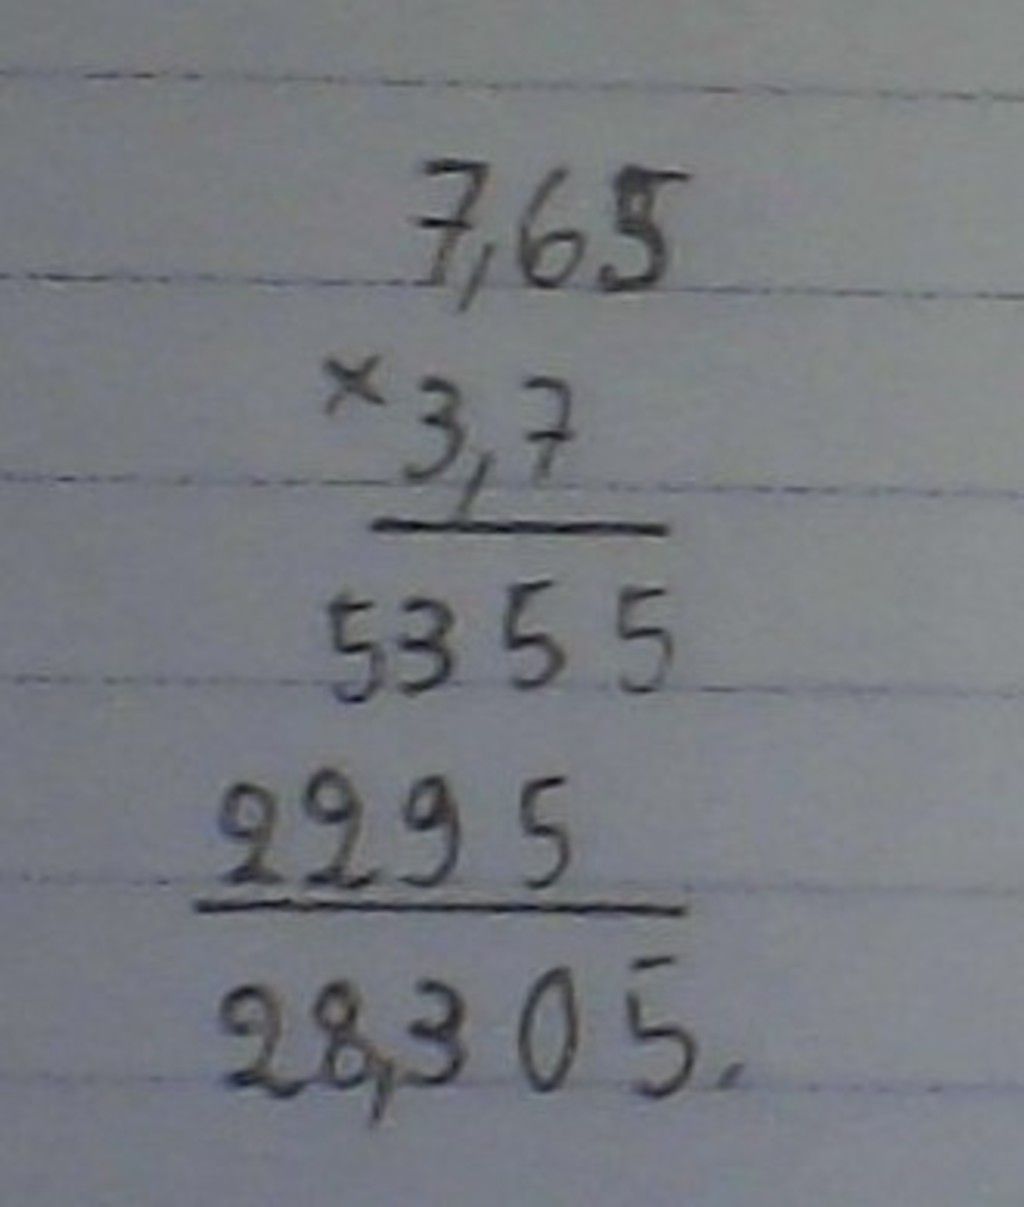 7,65
× 3,7
5355
2295
28,305.